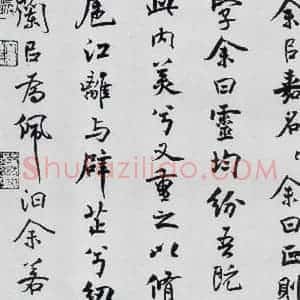 余以嘉名〻余曰正則
字余曰靈均紛吾既
此内美兮又重之以脩
扈江離与辟芷兮紉
蘭以為佩汩余若
Shufaziliao.com